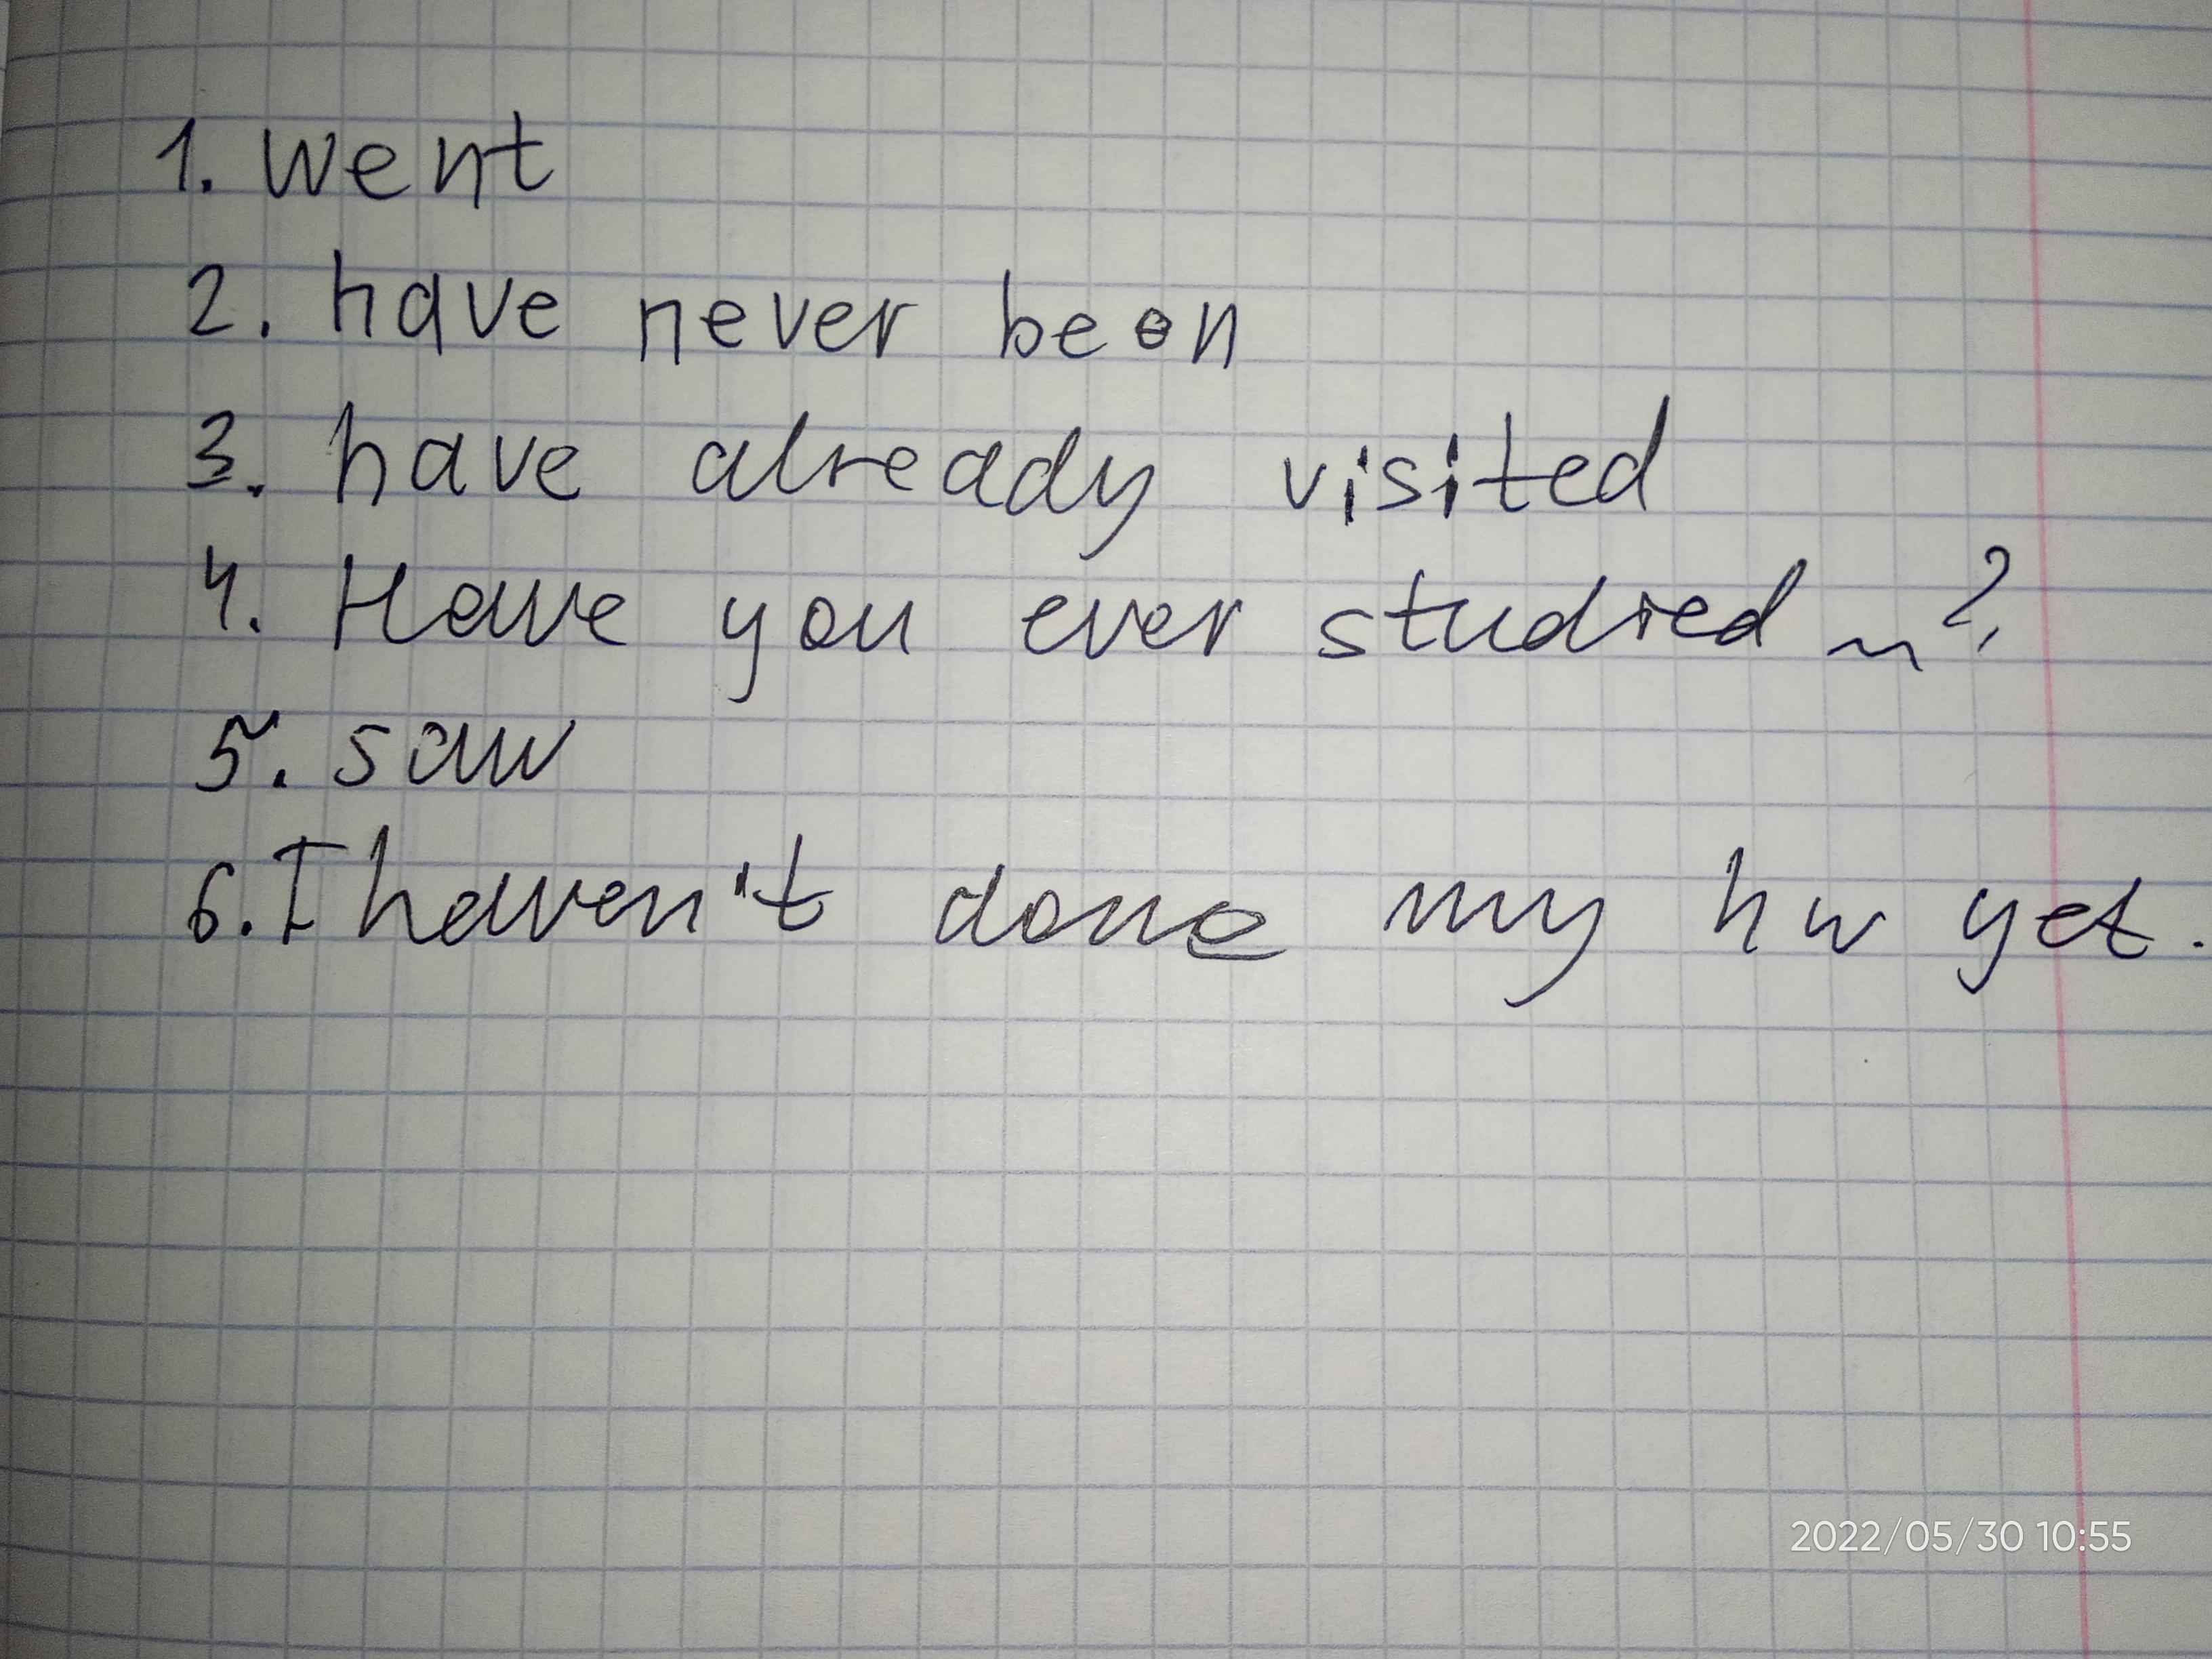 1. went
2. have never been
3. have already visited
4. Have you ever studied ~?
5. saw
6. I haven't done my hw yet.
2022/05/30 10:55